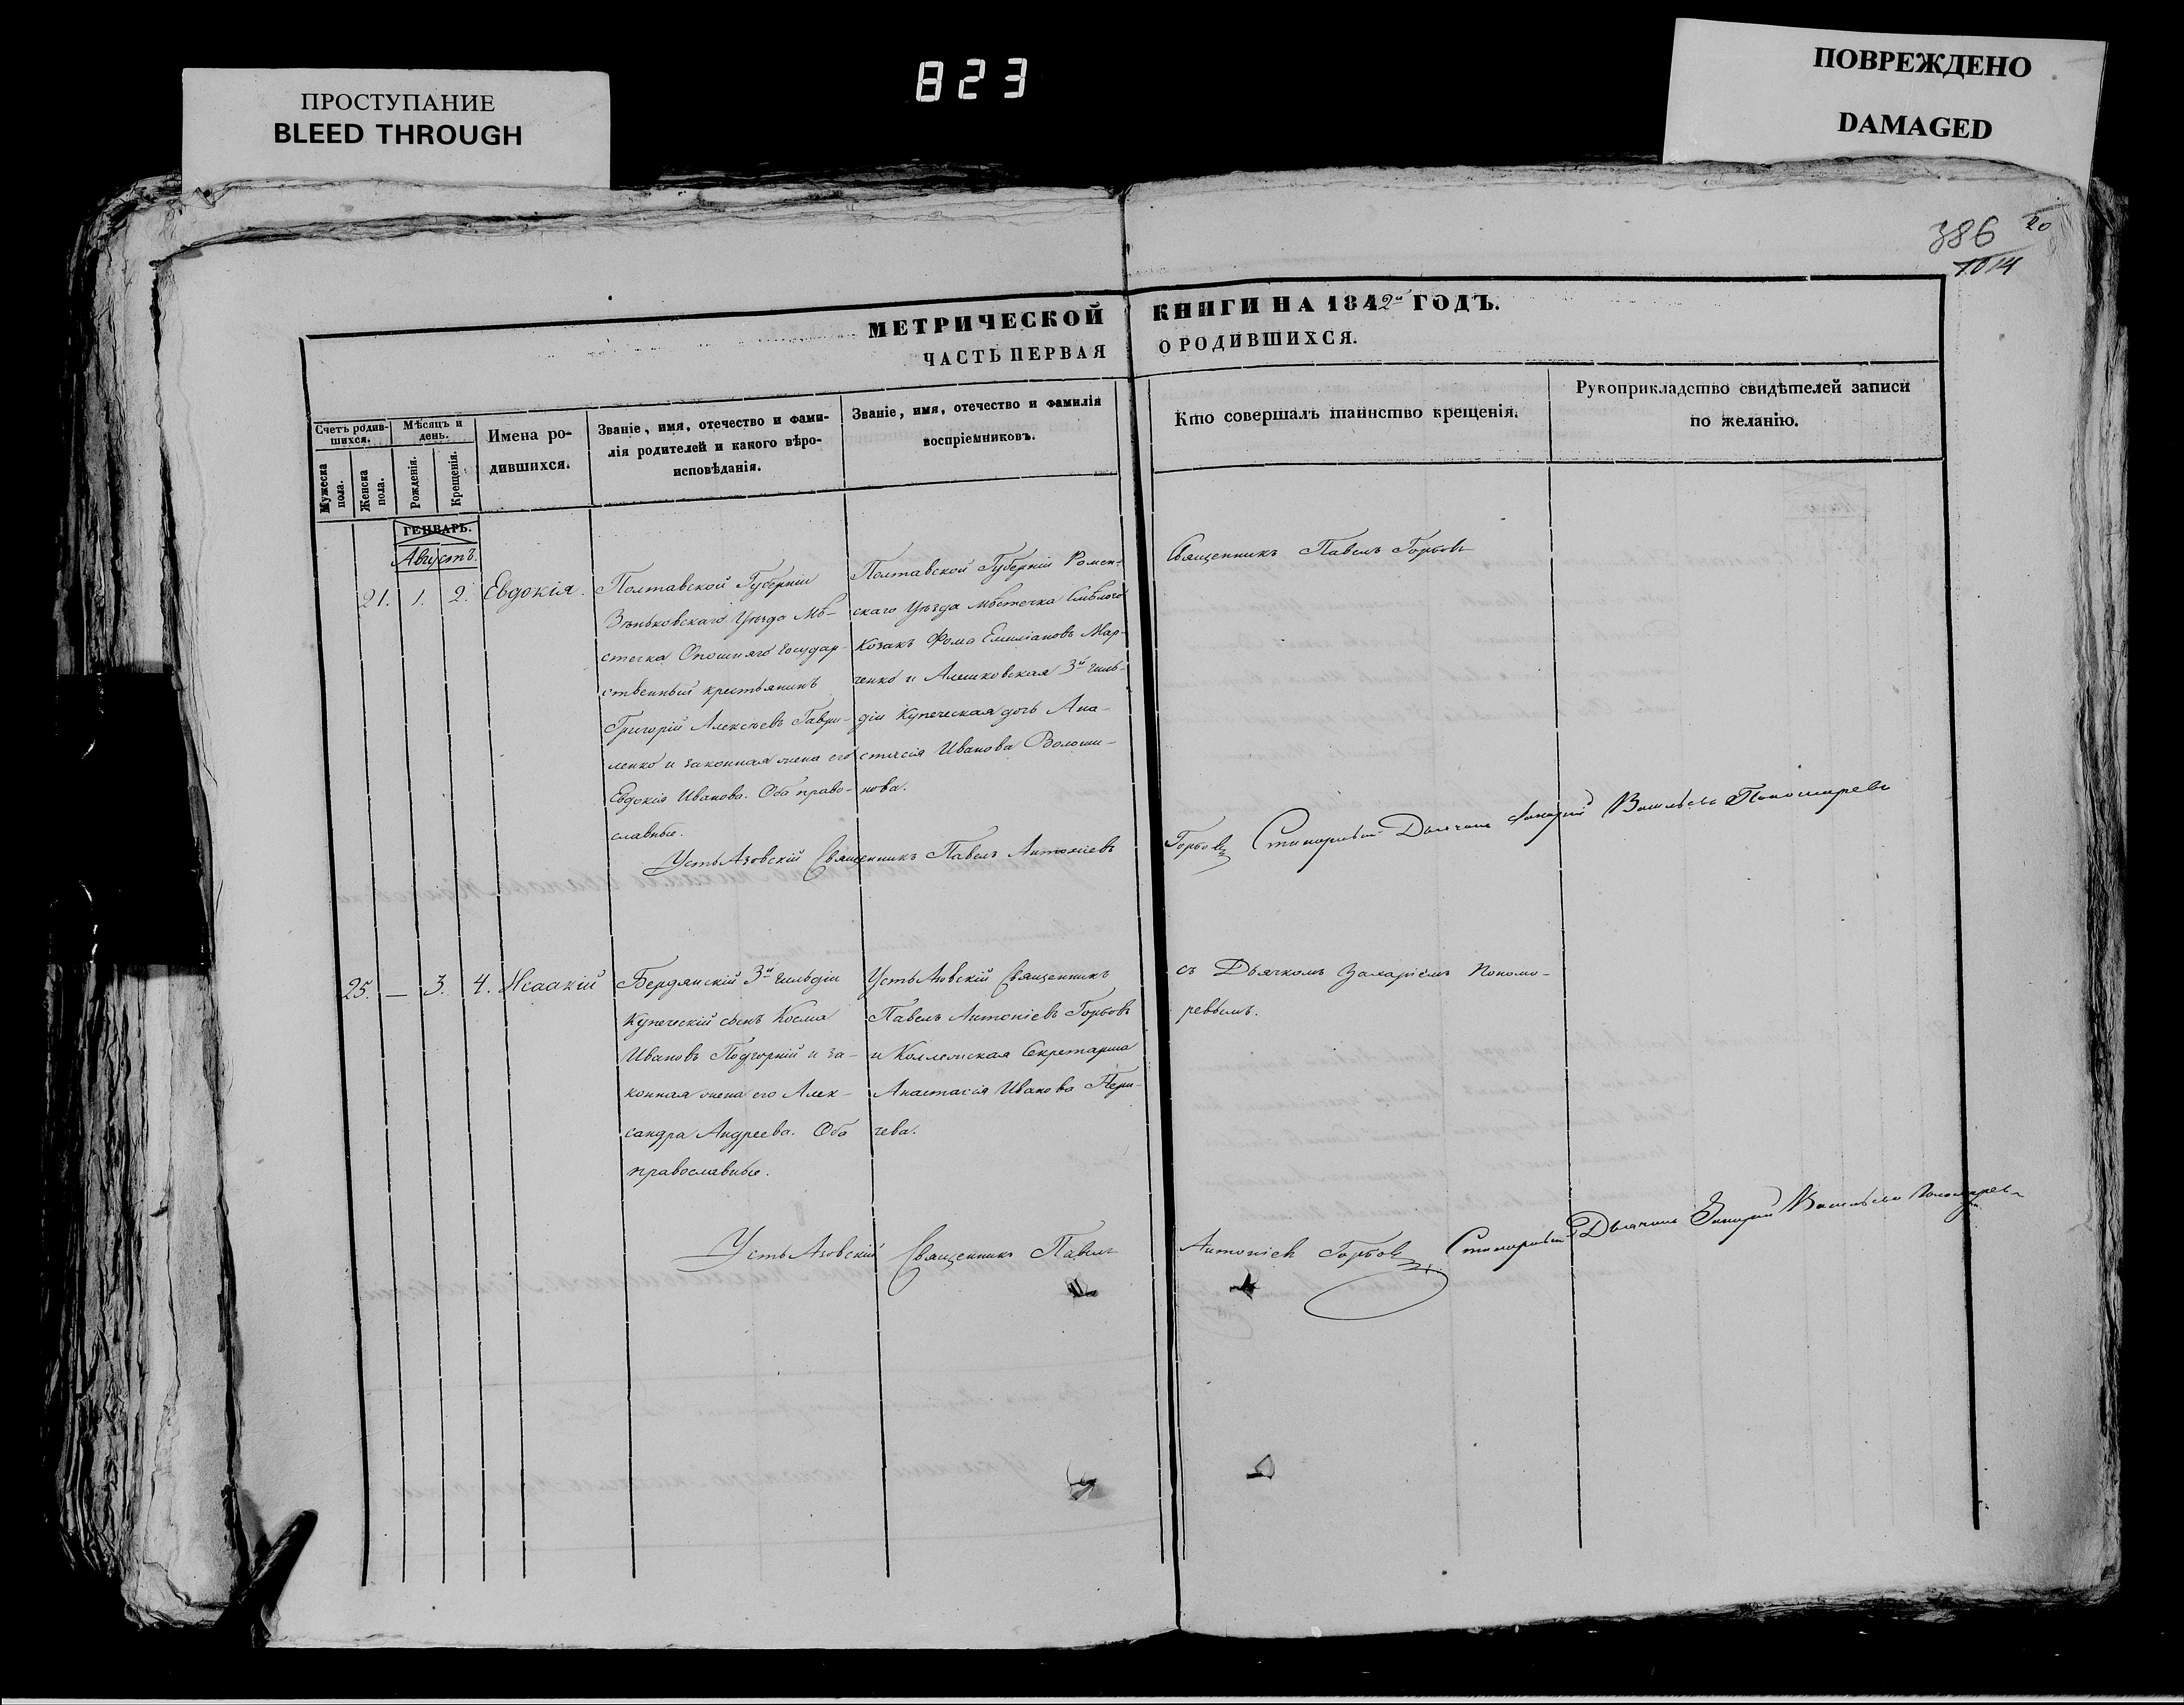 ПРОСТУПАНИЕ
BLEED THROUGH
823
ПОВРЕЖДЕНО
DAMAGED
386 20
1014
МЕТРИЧЕСКОЙ КНИГИ НА 1842й ГОДЪ.
ЧАСТЬ ПЕРВАЯ О РОДИВШИХСЯ.
Счетъ родив-
шихся.
Мѣсяцъ и
день.
Мужеска
пола.
Женска
пола.
Рожденія.
Крещенія.
Имена ро-
дившихся.
Званіе, имя, отечество и фами-
лія родителей и какого вѣро-
исповѣданія.
Званіе, имя, отечество и фамилія
воспріемниковъ.
Кто совершалъ таинство крещенія.
Рукоприкладство свидѣтелей записи
по желанію.
ГЕНВАРЬ.
Августъ.
21. 1. 2. Евдокія.
Полтавской Губерніи
Зѣньковскаго Уѣзда Мѣ-
стечка Опошняго государ-
ственный крестьянинъ
Григорій Алексѣевъ Гаври-
ленко и законная жена его
Евдокія Иванова. Оба право-
славные.
Полтавской Губерніи Ромен-
скаго Уѣзда мѣстечка Смѣлого
Козакъ Фома Емиліановъ Мар-
ченко и Алешковская 3й гиль-
діи купеческая дочь Ана-
стасія Иванова Волоши-
нова.
Священникъ Павелъ Горбовъ
Усть Азовскій Священникъ Павелъ Антоніевъ Горбовъ Дьячекъ Захарій Васильевъ Пономаревъ
25. — 3. 4. Исаакій
Бердянскій 3й гильдіи
Купеческій сынъ Косма
Ивановъ Подгорній и за-
конная жена его Алек-
сандра Андреева. Оба
православные.
Усть Азовскій Священникъ
Павелъ Антоніевъ Горбовъ
и Коллежская Секретарша
Анастасія Иванова
чева.
съ Дьячкомъ Захаріемъ Пономо-
ревымъ.
Усть Азовскій Священникъ Павелъ Антоніевъ Горбовъ Дьячекъ Захарій Васильевъ Пономаревъ